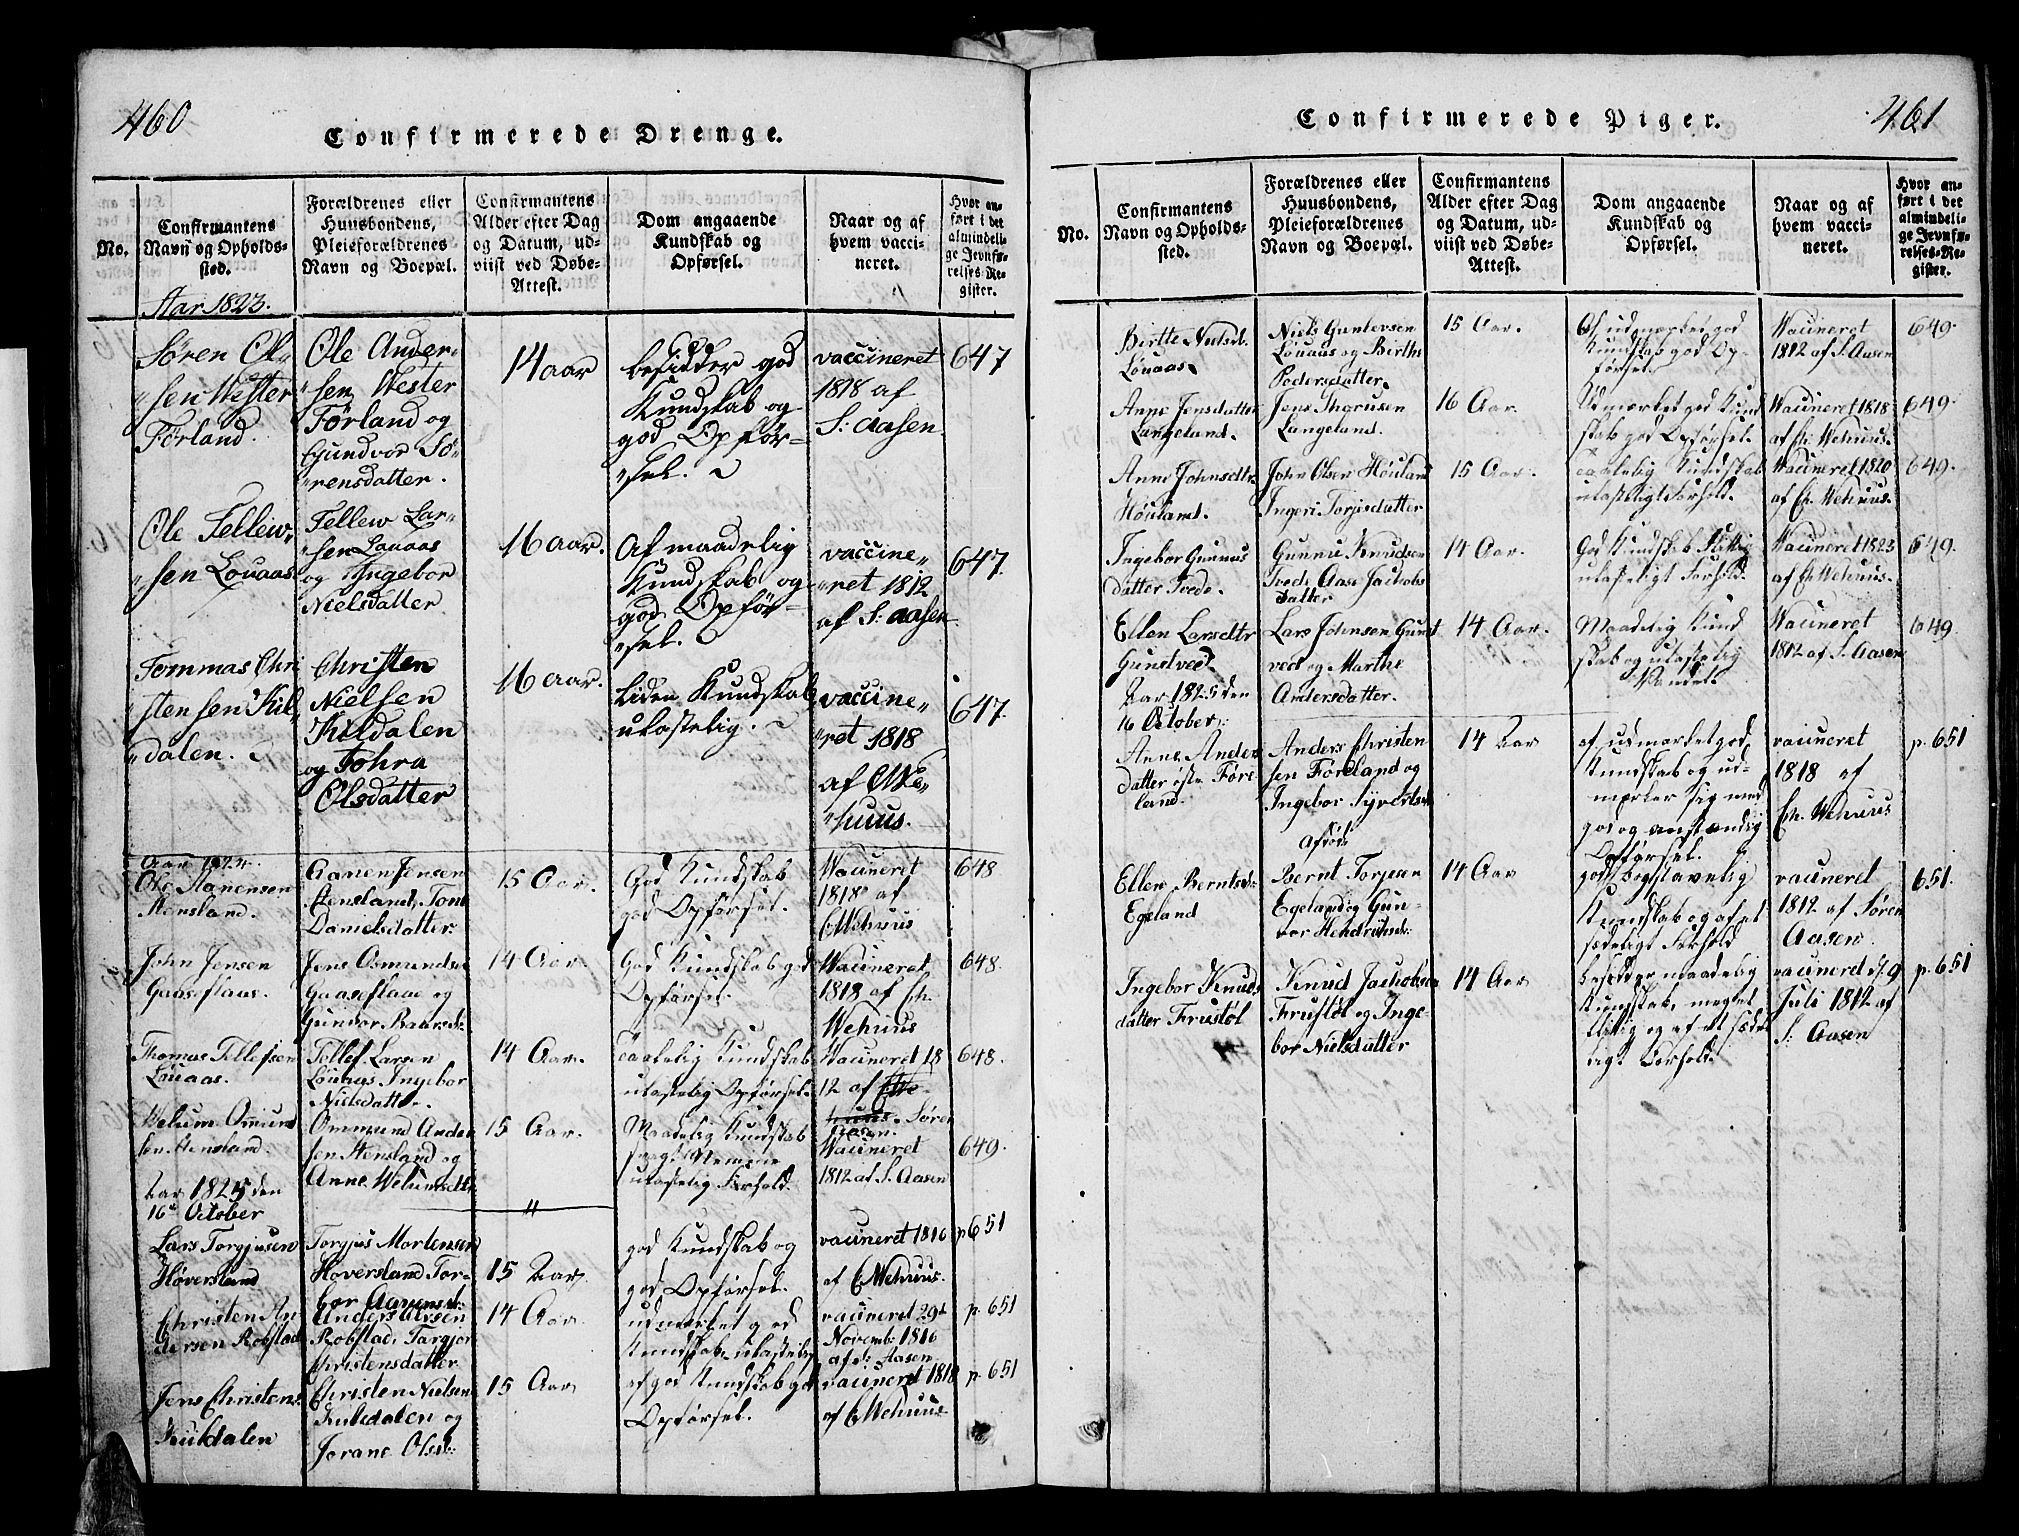 460
Confirmerede Drenge.
No.
Confirmantens
Navn og Opholds-
sted.
Forældrenes eller
Huusbondens,
Pleieforældrenes
Navn og Boepæl.
Confirmantens
Alder efter Dag
og Datum, ud-
viist ved Døbe-
Attest.
Dom angaaende
Kundskab og
Opførsel.
Naar og af
hvem vacci-
neret.
Hvor an-
ført i det
almindeli-
ge Jevnfø-
relses-Re-
gister.
Aar 1823.
Søren Ol„
„sen Wester
Førland.
Ole Ander„
„sen Wester
Førland og
Gundvor Sö„
„rensdatter.
14 aar
besidder god
Kundskab og
god Opför„
„sel.
vaccineret
1818 af
S: Aasen.
647
Ole Tellew„
„sen Lovaas
Tellew Lar„
„sen Lovaas
og Ingebor
Nielsdatter
16 aar.
Af maadelig
Kundskab og
god Opför„
„sel.
vaccine„
„ret 1812
af S: Aasen
647.
Tommas Chri
„stensen Kil„
„dalen.
Christen
Nielsen
Kildalen
og Johra
Olsdatter
16 aar.
Liden Kundskab
ulastelig.
vaccine„
„ret 1818
af C We„
„huus.
647.
Aar 1824.
Ole Aanensen
Stensland.
Aanen Jensen
Stensland, Tone
Danielsdatter.
15 Aar.
God Kundskab
god Opførsel.
Vaccineret
1818 af
C Wehuus
648
John Jensen
Gaaseflaae.
Jens Osmundsen
Gaaseflaae og
Gundor Baarsdr:
14 Aar.
God Kundskab god
Opførsel.
Vaccineret
1818 af Ch.
Wehuus
648.
Thomas Tellefsen
Louaas.
Tellef Larsen
Louaas, Ingebor
Nielsdatter.
14 Aar.
taalelig Kundskab
ulastelig Opførsel.
Vaccineret 18
12 af
Søren
Aasen.
648.
Welum Omund
sen Stensland.
Ommund Ander
sen Stensland og
Anne Welumsdtr
15 Aar.
Maadelig Kundskab
svagt Nemme
ulastelig Forhold.
Vaccineret
1812 af S. Aasen
649.
Aar 1825 den
16de October
Lars Torgjusen
Høversland
Torgjus Mortensen
Høversland Tor-
bor Aanensd:
15 Aar.
god Kundskab og
god Opførsel.
vaccineret 1816
af C Wehuus.
p 651
Christen An
dersen Robstad
Anders Arsen
Robstad, Targjer
Christensdatter
14 Aar.
udmærket god
Kundskab, ulastelig
vaccineret 29d
Novemb: 1816
af S: Aasen
p. 651
Jens Christens.
Kuldalen
Christen Nielsen
Kuledalen og
Jorane Olsd:
15 Aar
af god Kundskab god
Opførsel.
vaccineret 1818
af C Wehuus
p. 651
461
Confirmerede Piger.
No.
Confirmantens
Navn og Opholds-
sted.
Forældrenes eller
Huusbondens,
Pleieforældrenes
Navn og Boepæl.
Confirmantens
Alder efter Dag
og Datum, ud-
viist ved Døbe-
Attest.
Dom angaaende
Kundskab og
Opførsel.
Naar og af
hvem vacci-
neret.
Hvor an-
ført i det
almindeli-
ge Jevnfø-
relses-Re-
gister.
Birtte Nielsd.
Løvaas.
Niels Guntevsen
Løvaas og Birthe
Pedersdatter.
15 Aar.
Af udmærket god
Kundskab god Op-
førsel.
Vaccineret
1812 af S. Aasen
649.
Anne Jensdatter
Langeland.
Jens Thorusen
Langeland.
16 Aar.
Udmærket god Kund
skab god Opførsel.
Vaccineret 1818
af Ch. Wehuus.
649.
Anne Johnsdtr
Høuland.
John Olsen Høuland
Ingeri Torjisdatter
15 Aar.
taalelig Kundskab
ulasteligt Forhold.
Vaccineret 1820
af Ch. Wehuus.
649.
Ingebor Gunnus
datter Tvede.
Gunnu Knudsen
Tvede, Aase Jacobs
datter
14 Aar.
God Kundskab
ulasteligt Forhold.
Vaccineret 1823
af Ch. Wehuus.
649.
Ellen Larsdtr
Gunstved.
Lars Johnsen Gunst
ved og Marthe
Andersdatter.
14 Aar.
Maadelig Kund
skab og ulastelig
Vandel.
Vaccineret
1812 af S. Aasen
649.
Aar 1825 den
16 October.
Anne Anders
datter øste Føre
land.
Anders Christen
sen Föreland og
Ingebor Syvertsd:
14 Aar
af udmærket god
Kundskab og ud-
mærker sig med
god og anstændig
Opførsel.
vaccineret
1818 af
Ch. Wehuus
p. 651
Ellen Berntsd:
Egeland
Bernt Torjesen
Egeland og Gun-
vor
14 Aar
godt bogstavelig
Kundskab og af et
sædeligt Forhold
vaccineret
1812 af Søren
Aasen.
651.
Ingebor Knuds
datter Frustøl
Knud Jachobsen
Frustøl og Inge-
bor Nielsdatter
14 Aar
besidder maadelig
Kundskab, meget
flittig og af et sæde
ligt Forhold.
vaccineret d. 9
Juli 1812 af
S: Aasen
p. 651